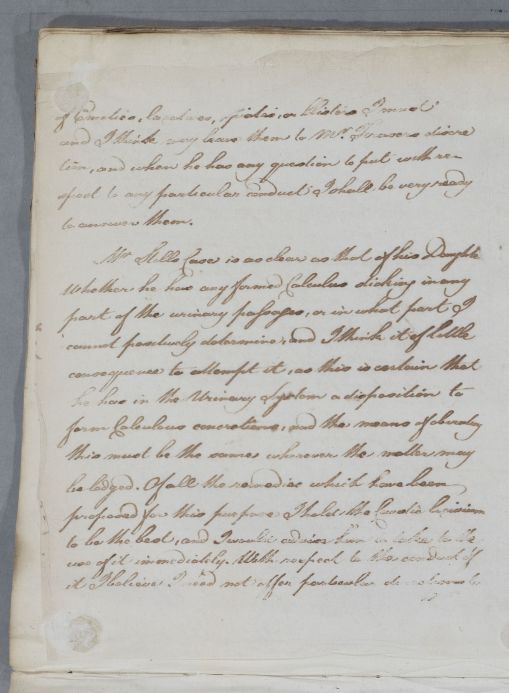 of Emetics, laxatives, opiates, or blisters I must
and I think may leave them to Mr. Travers discre
tion, and when he has any question to put with re-
spect to any particular conduct I shall be very ready
to answer them.
Mr. Hills Case is as clear as that of his Daughter
Whether he has any formed Calculus sticking in any
part of the urinary passages, or in what part I
cannot positively determine, and I think it of little
consequence to attempt it, as this is certain that
he has in the Urinary System a disposition to
form Calculous concretions, and the means of
this must be the same wherever the matter may
be lodged. Of all the remedies which have been
proposed for this purpose I hold the Caustic Lixivium
to be the best, and I would advise him to take to the
use of it immediately. With respect to the conduct of
it I believe I need not offer particular directions to